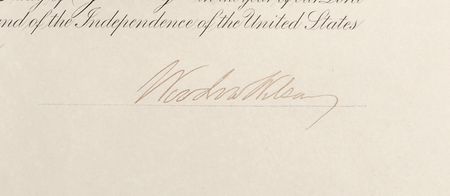 in the year of our Lord
and of the Independence of the United States
Woodrow Wilson